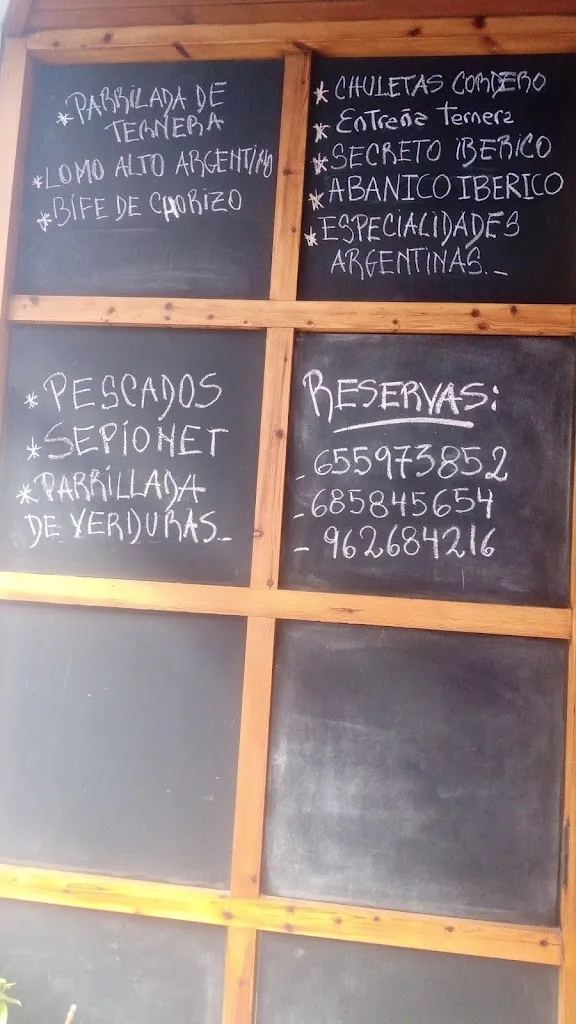 * PARRILADA DE
TERNERA
* LOMO ALTO ARGENTINO
* BIFE DE CHORIZO
* CHULETAS CORDERO
* Entraña ternera
* SECRETO IBERICO
* ABANICO IBERICO
* ESPECIALIDADES
ARGENTINAS._
* PESCADOS
* SEPIONET
* PARRILLADA
DE VERDURAS_
RESERVAS:
- 655973852
- 685845654
- 962684216